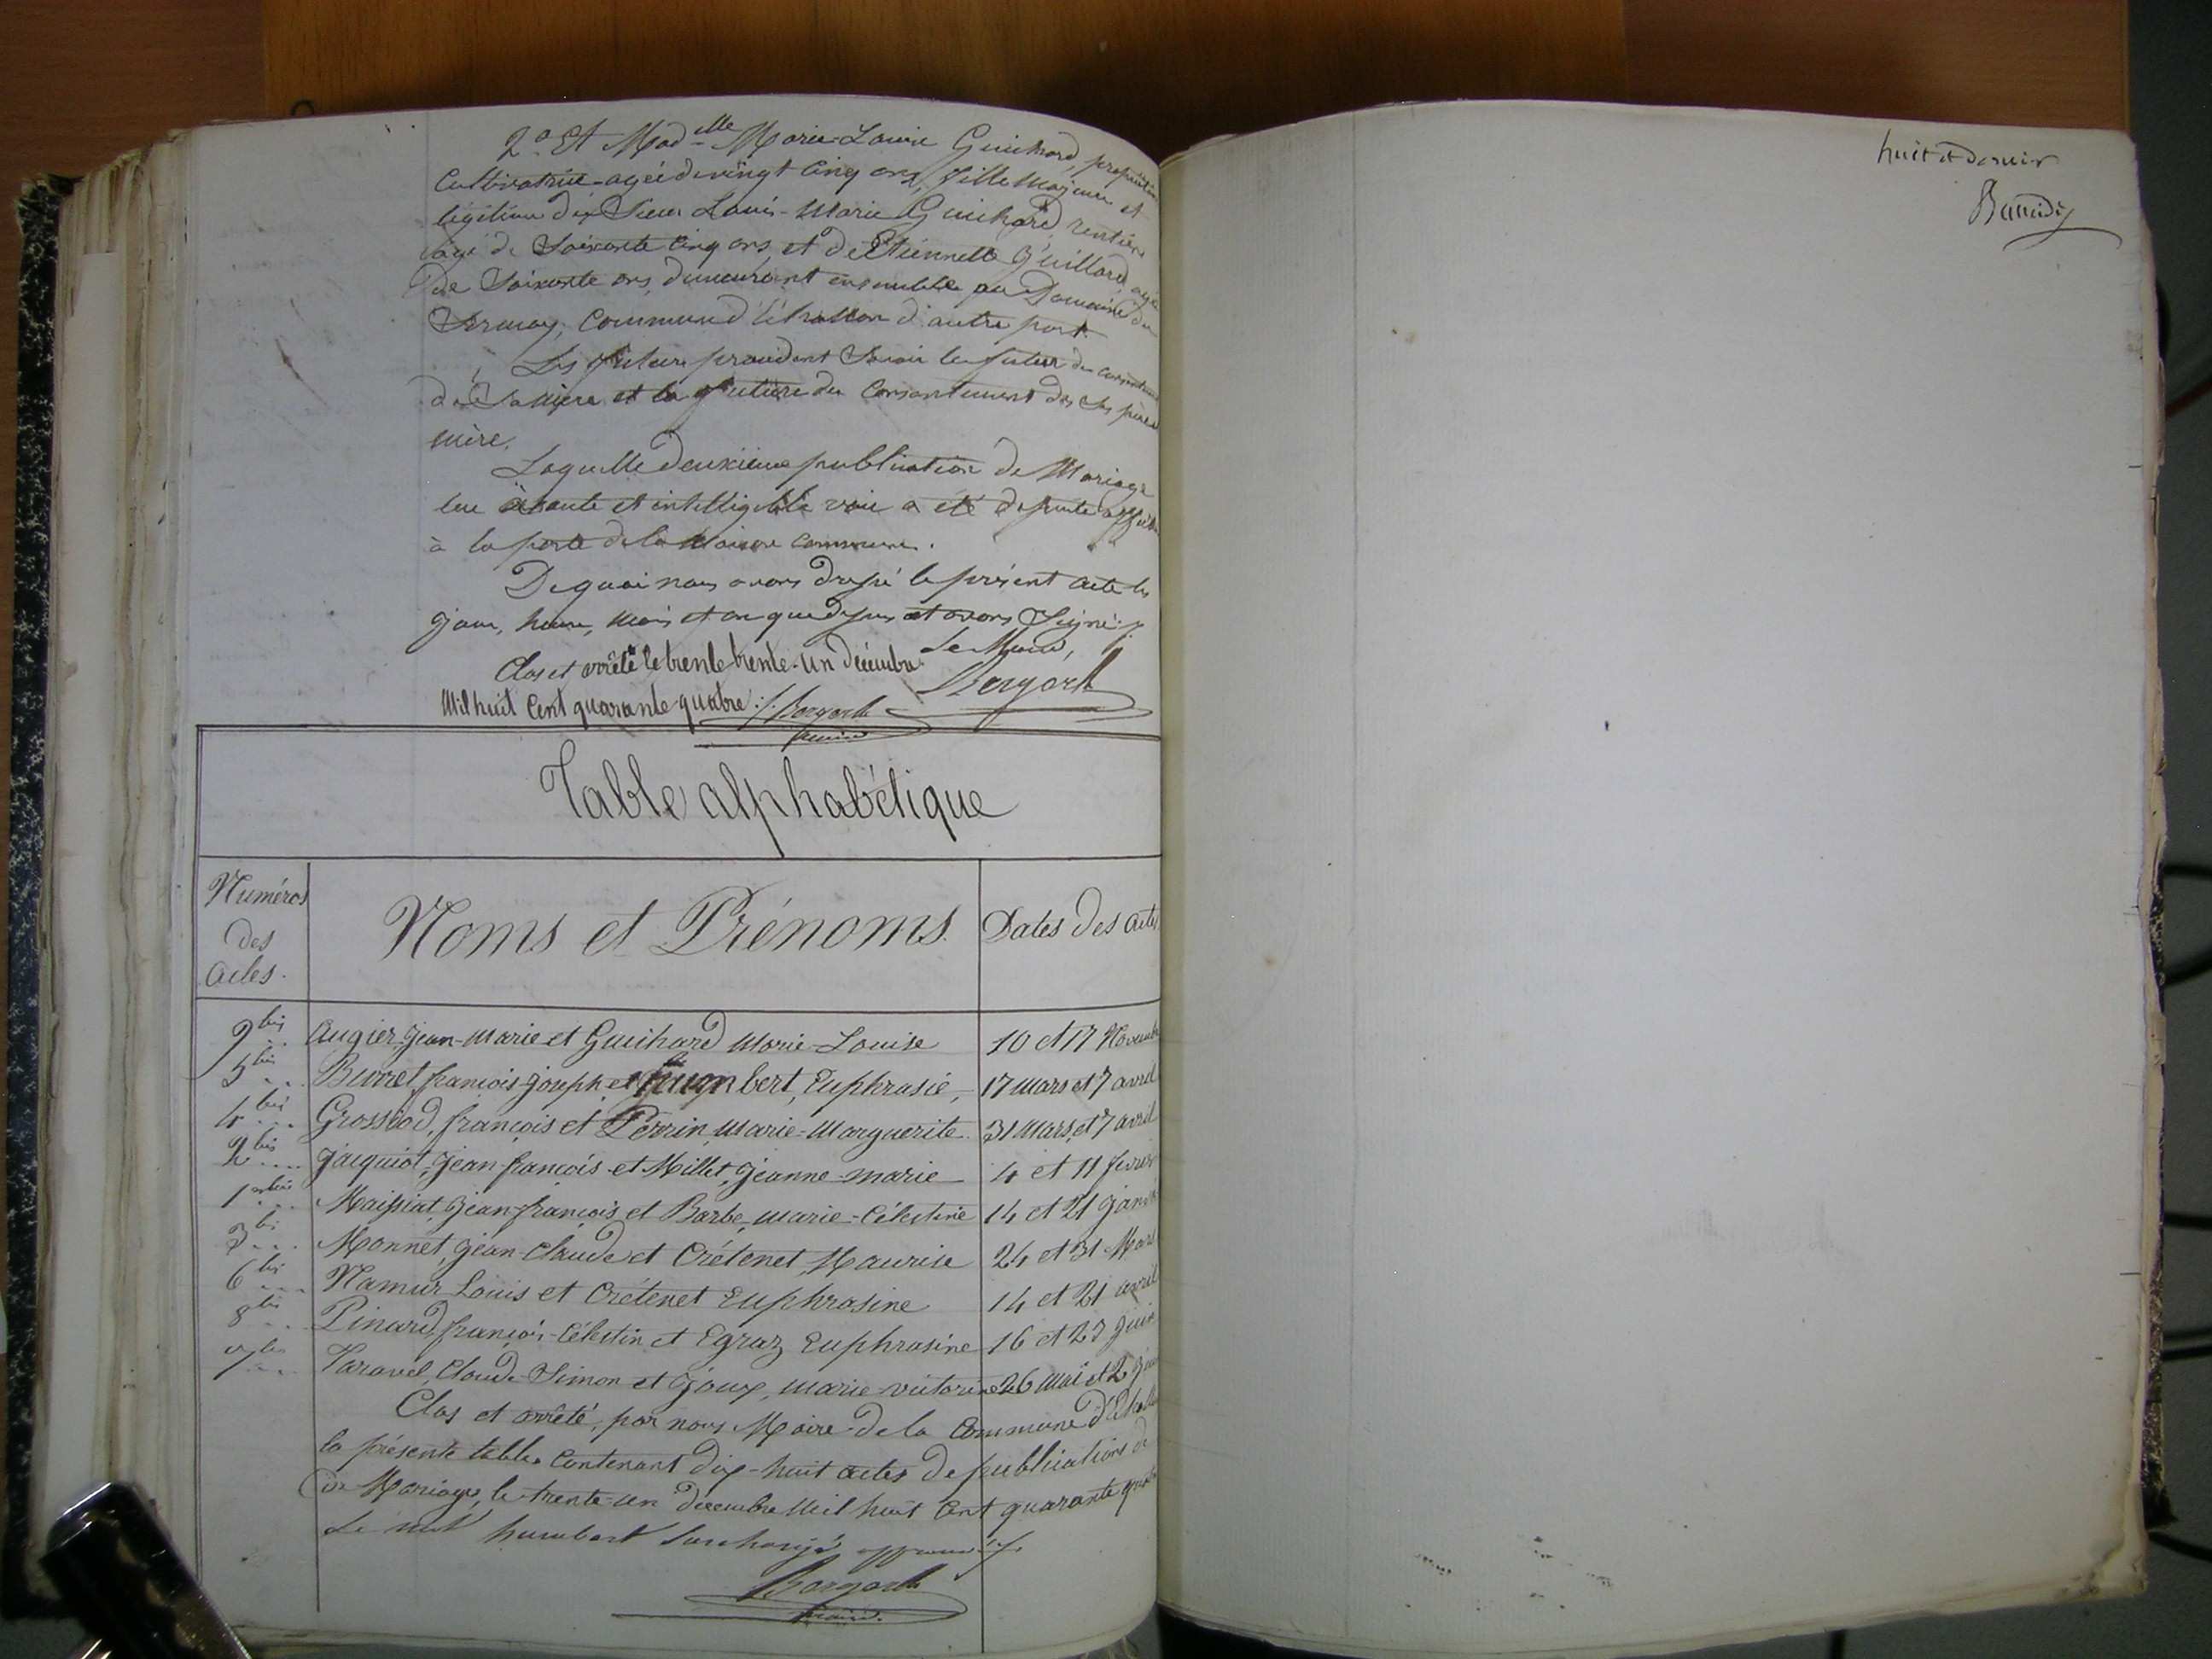 2° Et Mad elle Marie-Louise Guichard,
Cultivatrice agée de vingt Cinq ans, fille Majeure et
légitime du Sieur Louis-Marie Guichard, rentier
agé de Soixante Cinq ans, et de Etiennette Guillard, agée
de Soixante ans, demeurant ensemble au Domaine du
Commune d'Echallon d'autre part.
Les futurs procèdent Savoir le futur du consentement
de Sa Mère et la future du Consentement des Ses père
mère.
Laquelle deuxième publication de Mariage
lue à haute et intelligible voix a été de suite affichée
à la porte de la Maison Commune.
De quoi nous avons dressé le présent acte les
jour, heure, mois et an que dessus et avons Signé
Le Maire,
Clos et arrêté le trente trente-un décembre
Mil huit Cent quarante-quatre ./.
Maire
Table alphabétique
Numéros des Actes.
Noms et Prénoms.
Dates des actes
9 bis Augier, Jean-Marie et Guichard Marie-Louise 10 et 17 Novembre
5 bis Burret françois-Joseph et humbert, Euphrasie, 17 mars et 7 avril
4 bis Grossiod, françois et Perrin, Marie-Marguerite 31 Mars et 7 avril
2 bis Jacquiot, Jean françois et Millet, Jeanne-marie 4 et 11 fevrier
1er bis Maissiat, Jean-françois et Barbe, Marie-Célestine 14 et 21 Janvier
3 bis Monnet, Jean-Claude et Crétenet, Maurise 24 et 31 Mars
6 bis Namur Louis et Crétenet Euphrosine 14 et 21 avril
8 bis Pinard, françois-Célestin et Egraz Euphrasine 16 et 23 Juin
7 bis Taravel, Claude-Simon et Joux, Marie-victorine 26 Mai et 2 Juin
Clos et arrêté, par nous Maire de la Commune d'Echallon
la présente table Contenant dix-huit actes de publications de
de Mariages, le trente-un décembre Mil huit Cent quarante quatre
Le mot humbert Surchargé, approuvé ./.
Maire.
huit et dernier